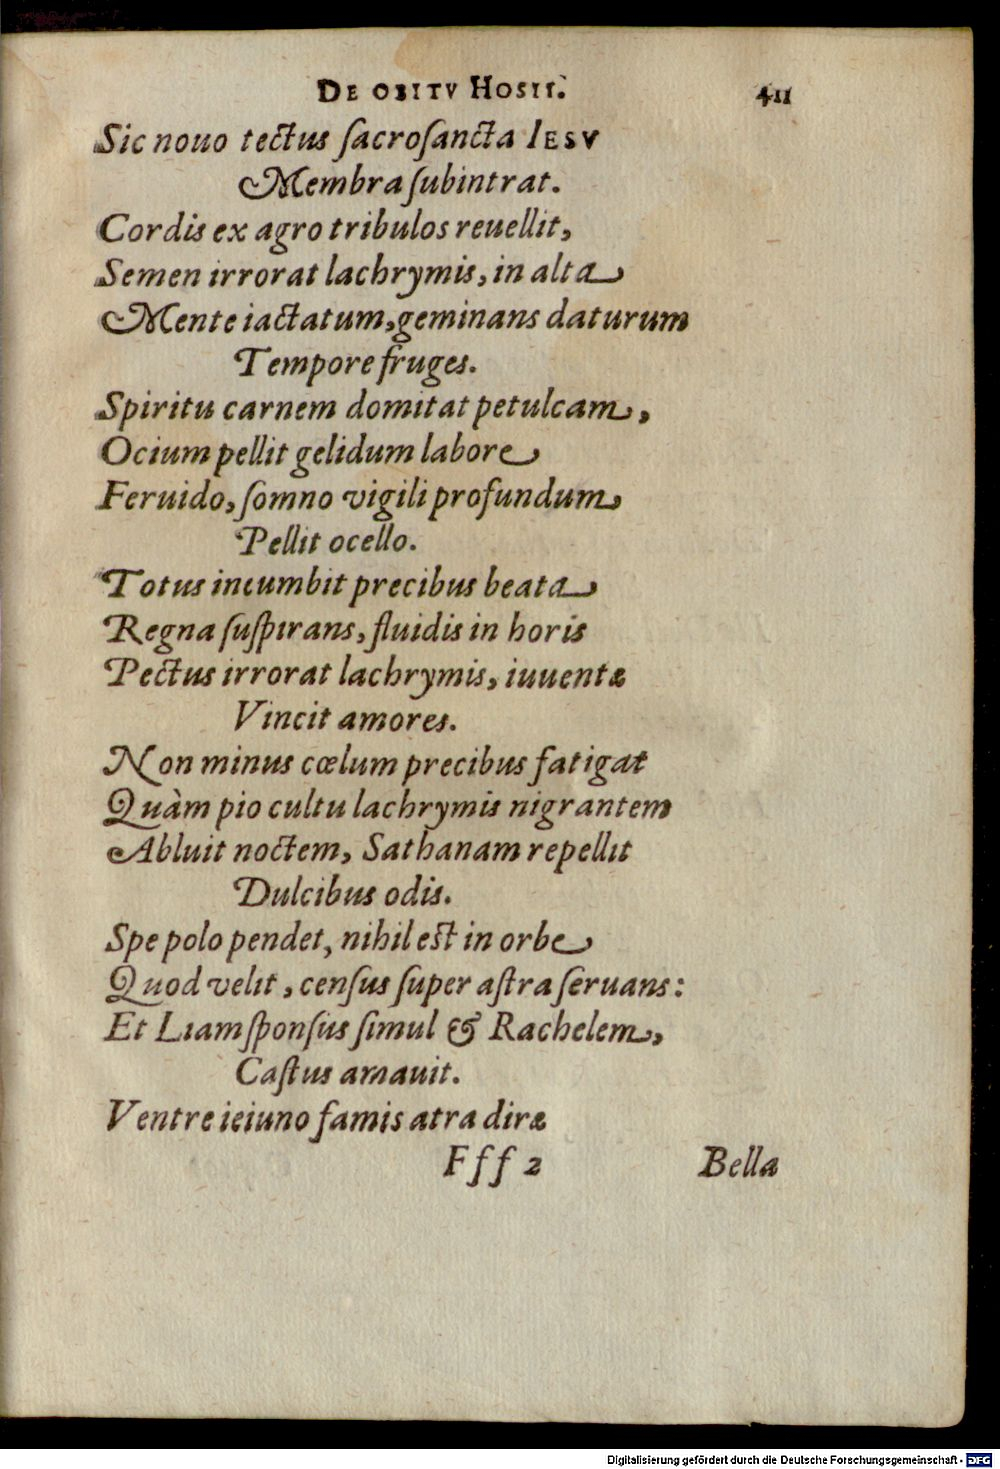 DE OBITV HOSII. 411
Sic nouo tectus ſacroſancta IESV
Membra ſubintrat.
Cordis ex agro tribulos reuellit,
Semen irrorat lachrymis, in alta
Mente iactatum, geminans daturum
Tempore fruges.
Spiritu carnem domitat petulcam,
Ocium pellit gelidum labore
Feruido, ſomno vigili profundum
Pellit ocello.
Totus incumbit precibus beata
Regna ſuſpirans, fluidis in horis
Pectus irrorat lachrymis, iuuentæ
Vincit amores.
Non minus cœlum precibus fatigat
Quàm pio cultu lachrymis nigrantem
Abluit noctem, Sathanam repellit
Dulcibus odis.
Spe polo pendet, nihil eſt in orbe
Quod velit, cenſus ſuper aſtra ſeruans:
Et Liam ſponſus ſimul & Rachelem,
Caſtus amauit.
Ventre ieiuno famis atra diræ
Fff 2 Bella
Digitalisierung gefördert durch die Deutsche Forschungsgemeinschaft - DFG